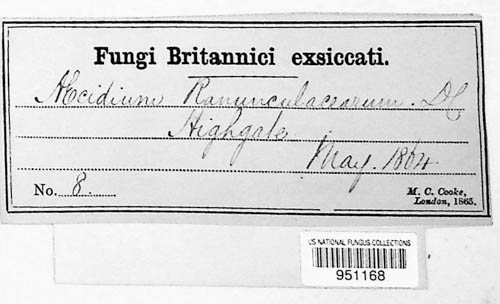 Fungi Britannici exsiccati.
Æcidium Ranunculacearum. DC
Highgate
May. 1864.
No. 8.
M. C. Cooke,
London, 1865.
US NATIONAL FUNGUS COLLECTIONS
951168